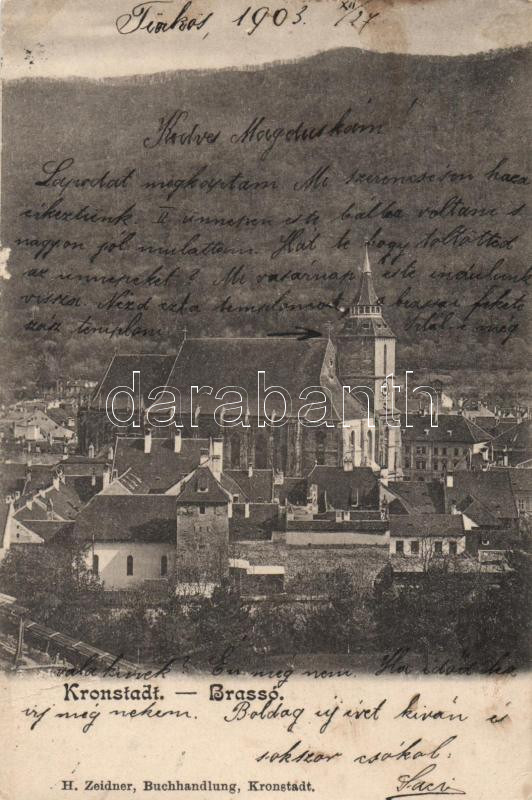 1903. XII/27
Kedves Magduskám!
Lapodat megkaptam. Mi szerencsésen haza
érkeztünk. II ünnepen este bálba voltam s
nagyon jól mulattam. Hát te hogy töltötted
az ünnepeket? Mi vasárnap este indulunk
vissza. Nézd ezt a templomot, a brassai feke
templom.
valakinek? Én még nem. Ha időd
írj még nekem. Boldog új évet kíván és
sokszor csókol:
Kronstadt. — Brassó.
H. Zeidner, Buchhandlung, Kronstadt.
darabanth